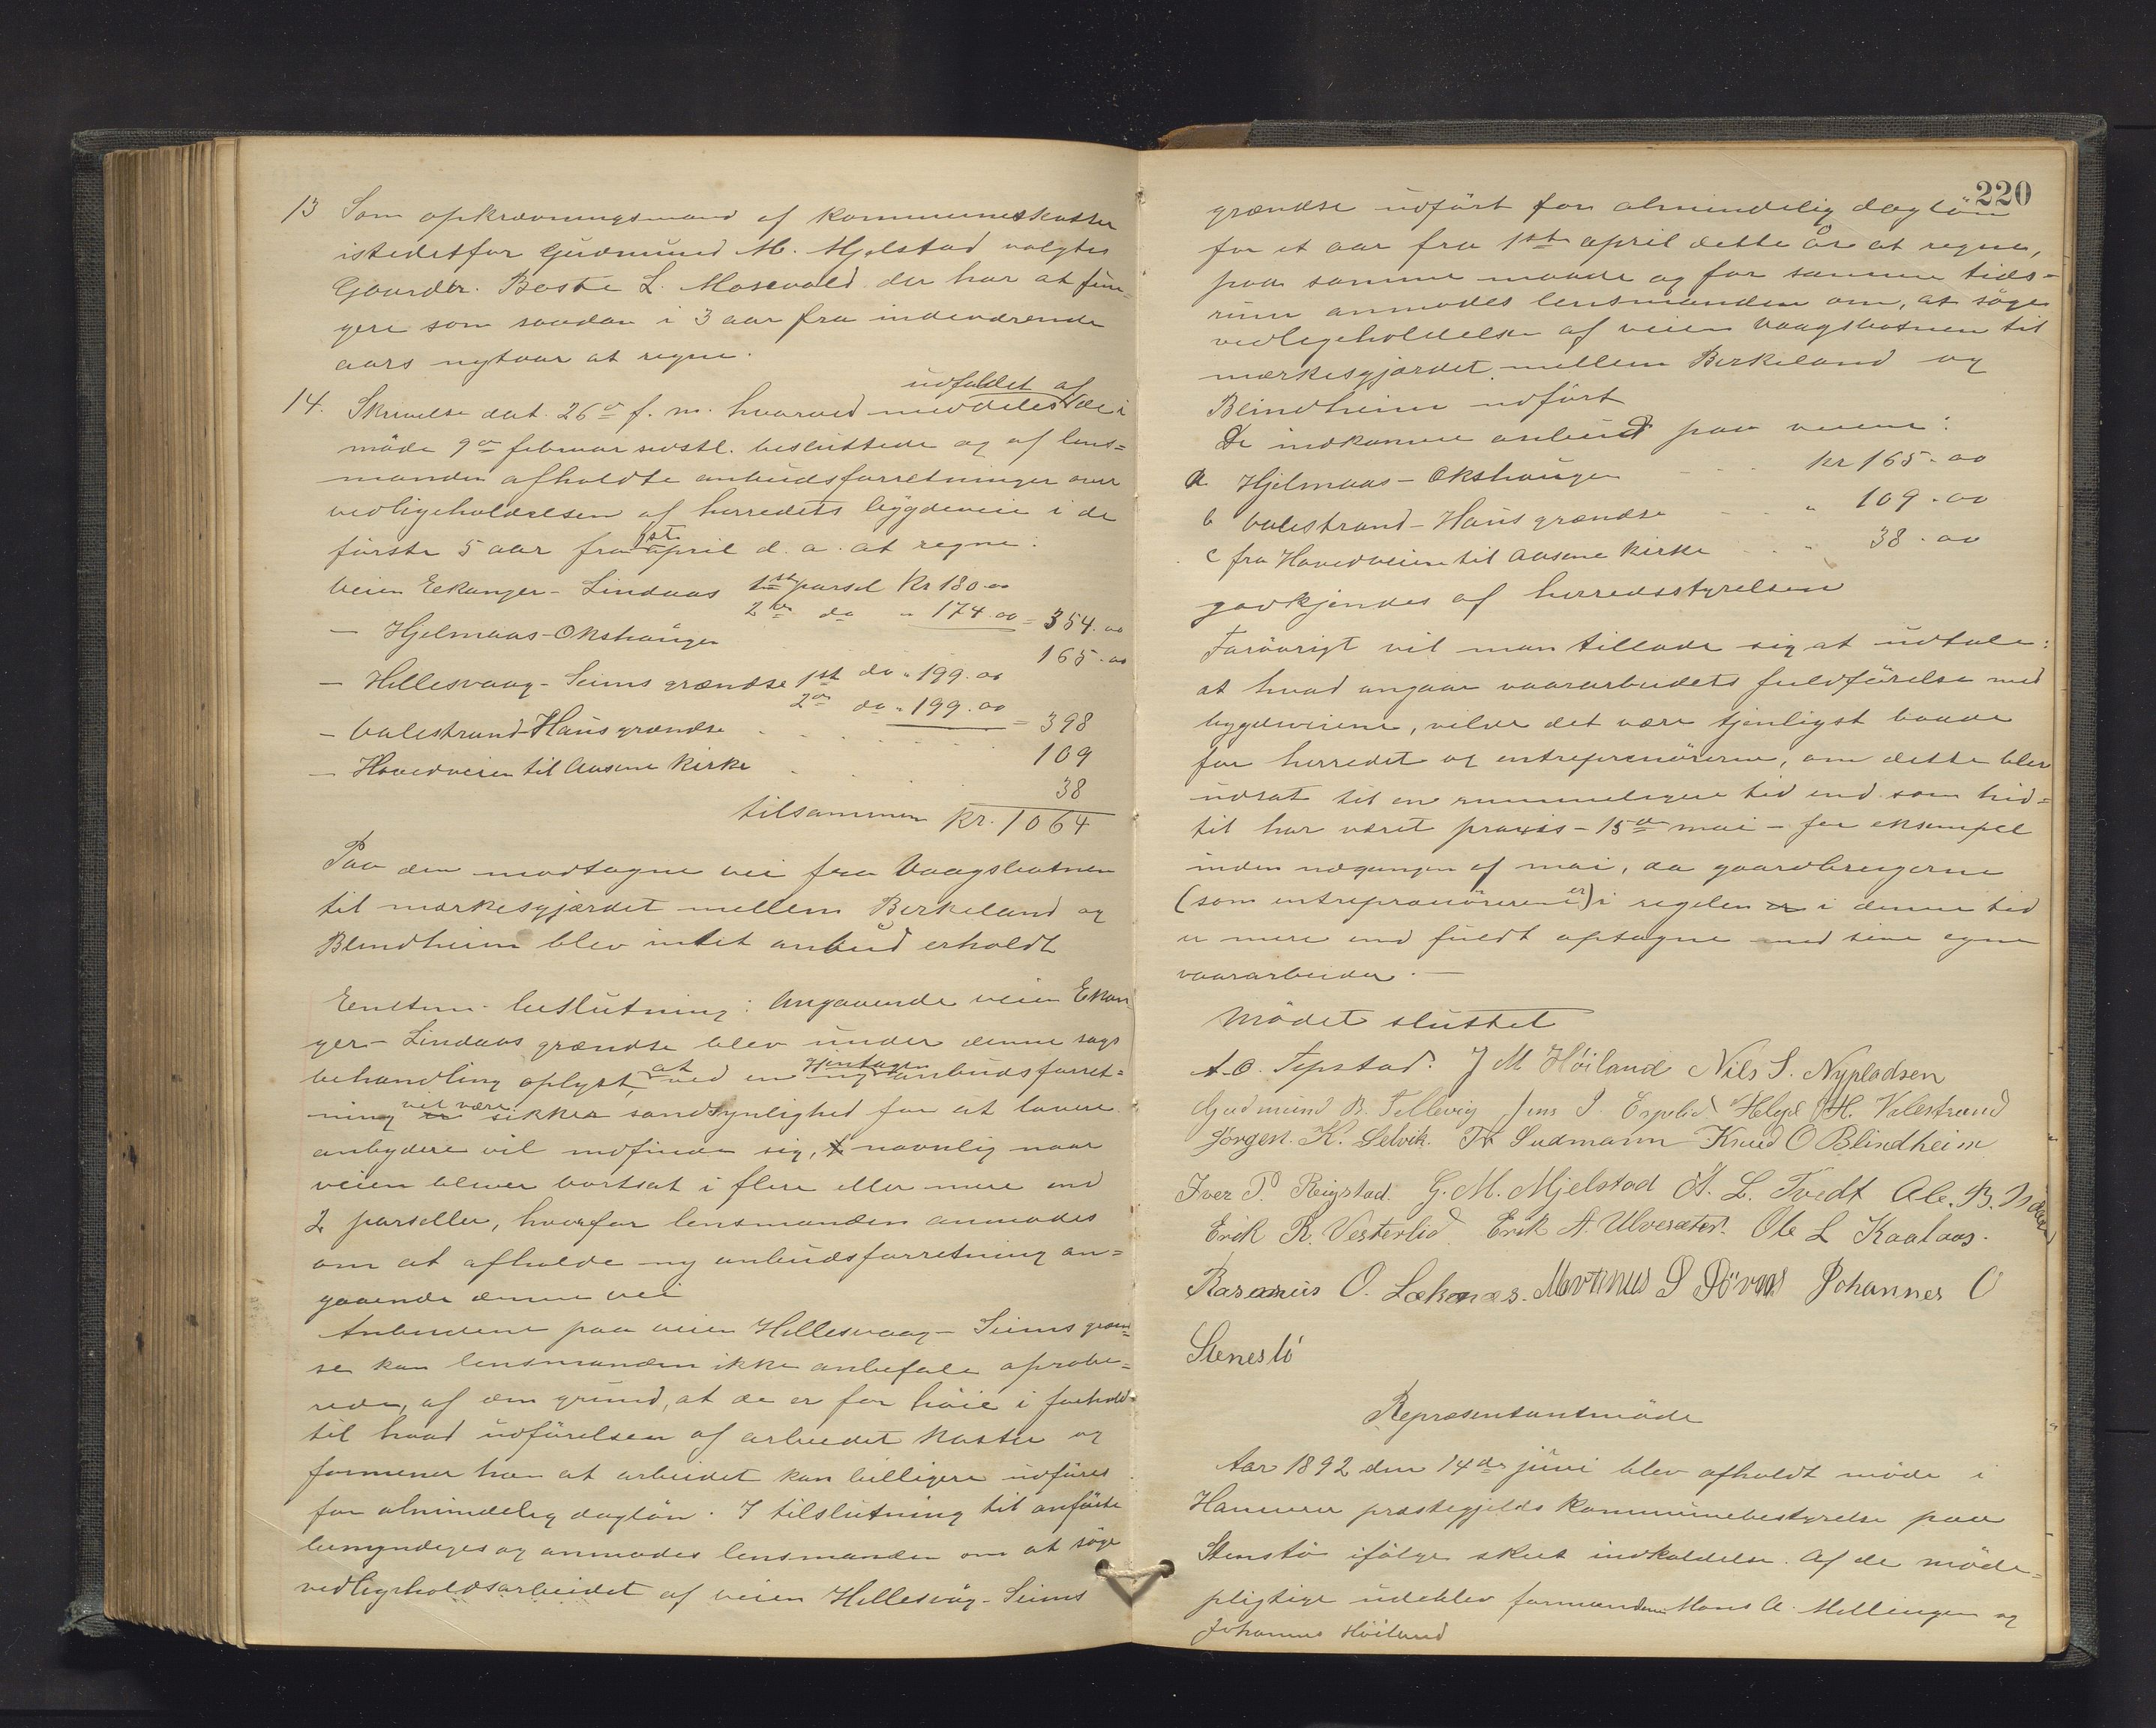 13 Som opkrævningsmand af kommuneskatter
istedetfor Gudmund M. Mjelstad valgtes
Gaardbr. Baste L. Mosevold der har at fun-
gere som saadan i 3 aar fra indeværende
aars nytaar at regne.
udfaldet af
14. Skrivelse dat. 26de f. m. hvorved meddeles de i
möde 9de februar sidstl. besluttede og af lens=
manden afholdte anbudsforretninger over
vedligeholdelsen af herredets bygdeveie i de
förste 5 aar fra 1ste april d. a. at regne:
Veien Eekanger - Lindaas 1ste parsel Kr 180.00
2den do " 174.00 = 354.00
— Hjelmaas - Okshaugen 165.00
— Hillesvaag - Seims grændse 1ste do " 199.00
2den do " 199.00 = 398
— Valestrand - Haus grændse 109
— Hovedveien til Aasene Kirke 38
tilsammen Kr. 1064
Paa den modtagne vei fra Vaagsbotnen
til mærkesgjærdet mellem Birkeland og
Blindheim blev intet anbud erholdt
Enstem. beslutning: Angaaende veien Ekan
ger - Lindaas grændse blev under denne sags
behandling oplyst, at ved en gjentagen anbudsforret=
ning vil være sikker sandsynlighed for at lavere
anbydere vil indfinde sig, navnlig naar
veien bliver bortsat i flere eller mere end
2 parseller, hvorfor lensmanden anmodes
om at afholde ny anbudsforretning an=
gaaende denne vei
Anbudene paa veien Hillesvaag - Seims græn=
se kan lensmanden ikke anbefale aprobe=
rede, af den grund, at de er for höie i forhold
til hvad udförelsen af arbeidet koster og
formener han at arbeidet kan billigere udföres
for almindelig daglön. I tilslutning til anförte
bemyndiges og anmodes lensmanden om at söge
vedligeholdsarbeidet af veien Hillesvåg - Seims
220
grændse udfört for almindelig daglön
for et aar fra 1ste april dette år at regne,
paa samme maade og for samme tids-
rum anmodes lensmanden om, at söge
vedligeholdelse af veien Vaagsbotnen til
mærkesgjærdet mellem Birkeland og
Blindheim udfört
De indkomne anbud paa veiene:
a. Hjelmaas - Okshaugen kr 165.00
b Valestrand - Haus grændse " 109.00
c fra Hovedveien til Aasene Kirke " 38.00
godkjendes af herredsstyrelsen
Forövrigt vil man tillade sig at udtale:
at hvad angaar vaararbeidets fuldförelse med
bygdeveiene, vilde det være tjenligst baade
for herredet og entreprenörerne, om dette blev
udsat til en rummeligere tid end som hid=
til har været praxis - 15de mai - for eksempel
inden udgangen af mai, da gaardbrugerne
(som entreprenörerne er) i regelen i denne tid
er mere end fuldt optagne med sine egne
vaararbeider. —
Mödet sluttet
A. O. Tepstad. J M Höiland Nils S. Nypladsen
Gudmund B. Tellevig Jens J. Espelid Helge H. Valestrand
Jörgen. K. Selvik. Th Sudmann Knud O Blindheim
Iver P. Reigstad. G. M. Mjelstad A. L. Tvedt Ole. B.
Erik R. Vesterlid Erik A. Ulvesæter. Ole L Kaalaas.
Rasmus O. Lekenæs. Martinus S Johannes O
Stenestö
Repræsentantmöde
Aar 1892 den 14de juni blev afholdt möde i
Hammer præstegjelds kommunebestyrelse paa
Stenstö ifölge skeet indkaldelse. Af de möde=
pligtige udeblev formanden Mons A. Mellingen og
Johannes Höiland